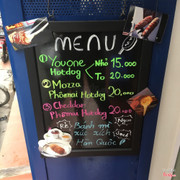 MENU
① Youone Nhỏ 15.000
Hotdog To 20.000
② Mozza
Phômai Hotdog 20.
③ Cheddar
Phômai Hotdog 20.
Bánh mì
xúc xích
Hàn Quốc